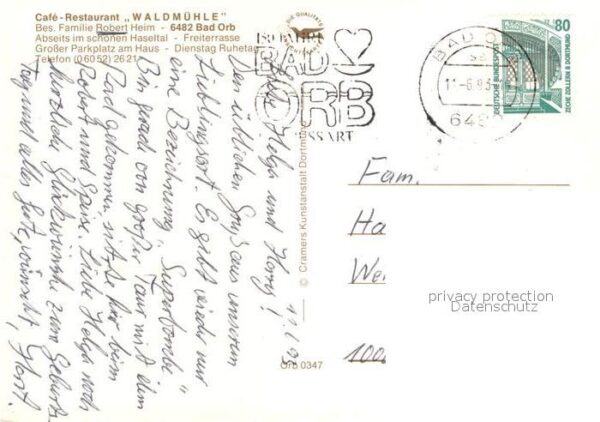 Café-Restaurant „WALDMÜHLE"
Bes. Familie Robert Heim - 6482 Bad Orb
Abseits im schönen Haseltal - Freiterrasse
Großer Parkplatz am Haus - Dienstag Ruhetag
Telefon (0 60 52) 26 21
DIE QUALITÄTS
150 JAHRE
BAD
ORB
SSART
BAD O
11-6.93
648
80
DEUTSCHE BUNDESPOST
ZECHE ZOLLERN II DORTMUND
11.6.93
Liebe Helga und Hans!
Den üblichen Gruß aus unserem
Lieblingsort. Es gibt wieder nur
eine Bezeichnung „Superbombe"
Bin gerad von großer Tour mit dem
Rad gekommen, sitze hier beim
Robert und Speise. Liebe Helga noch
herzliche Glückwünsche zum Geburts-
Tag und alles Gute, wünscht, Horst.
© Cramers Kunstanstalt Dortmund
Orb 0347
Fam.
Ha
We
100
privacy protection
Datenschutz